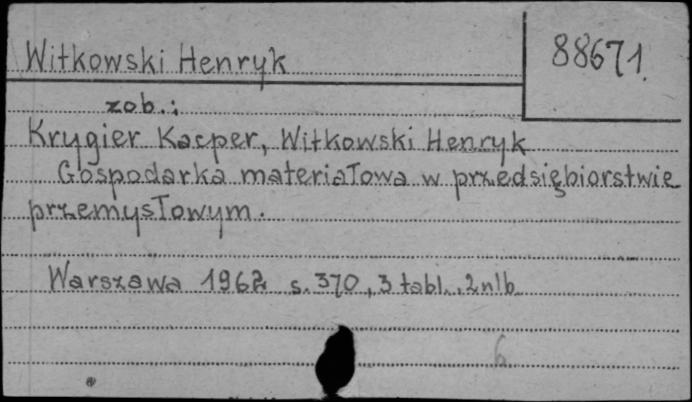 Witkowski Henryk
88671.
zob.:
Krygier Kacper, Witkowski Henryk
Gospodarka materiałowa w przedsiębiorstwie
przemysłowym.
Warszawa 1962 s. 370, 3 tabl., 2 nlb
6